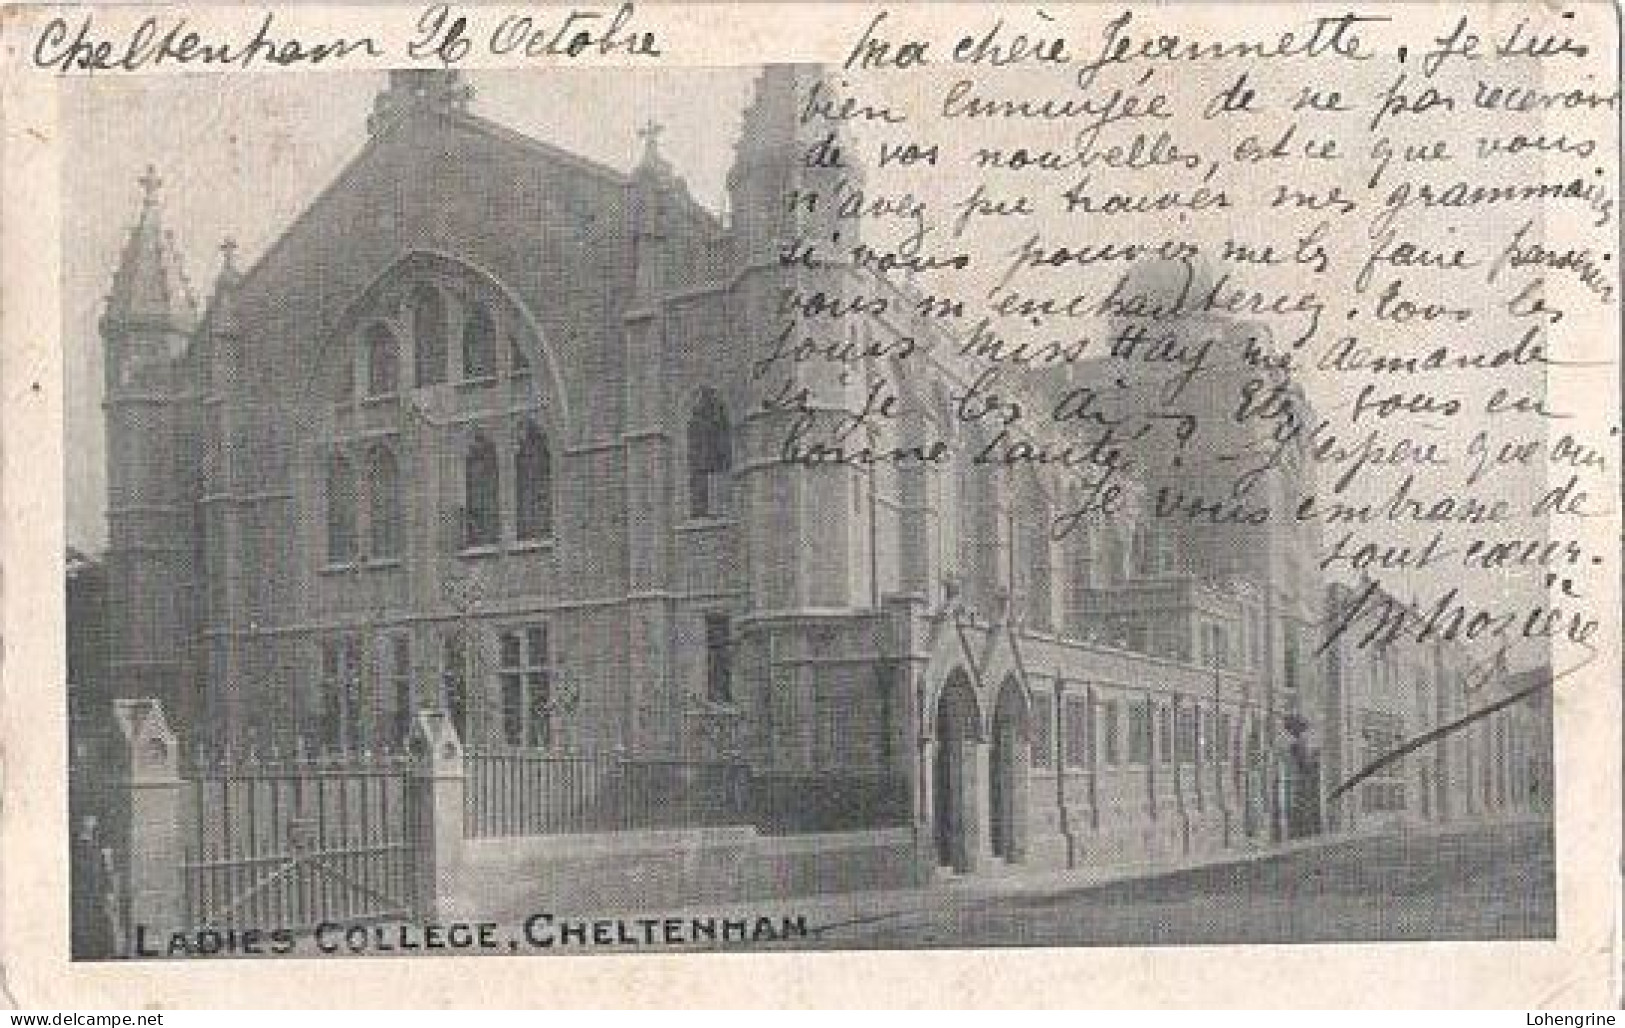 Cheltenham 26 Octobre
Ma chère Jeannette. Je suis
bien ennuyée de ne pas recevoir
de vos nouvelles, est ce que vous
n'avez pu trouver mes grammaires
si vous pouviez me les faire parvenir
vous m'enchanteriez. tous les
jours Miss Hay me demande
si je les ai - Etes vous en
bonne santé? - J'espère que oui
Je vous embrasse de
tout cœur.
LADIES COLLEGE, CHELTENHAM.
www.delcampe.net
Lohengrine